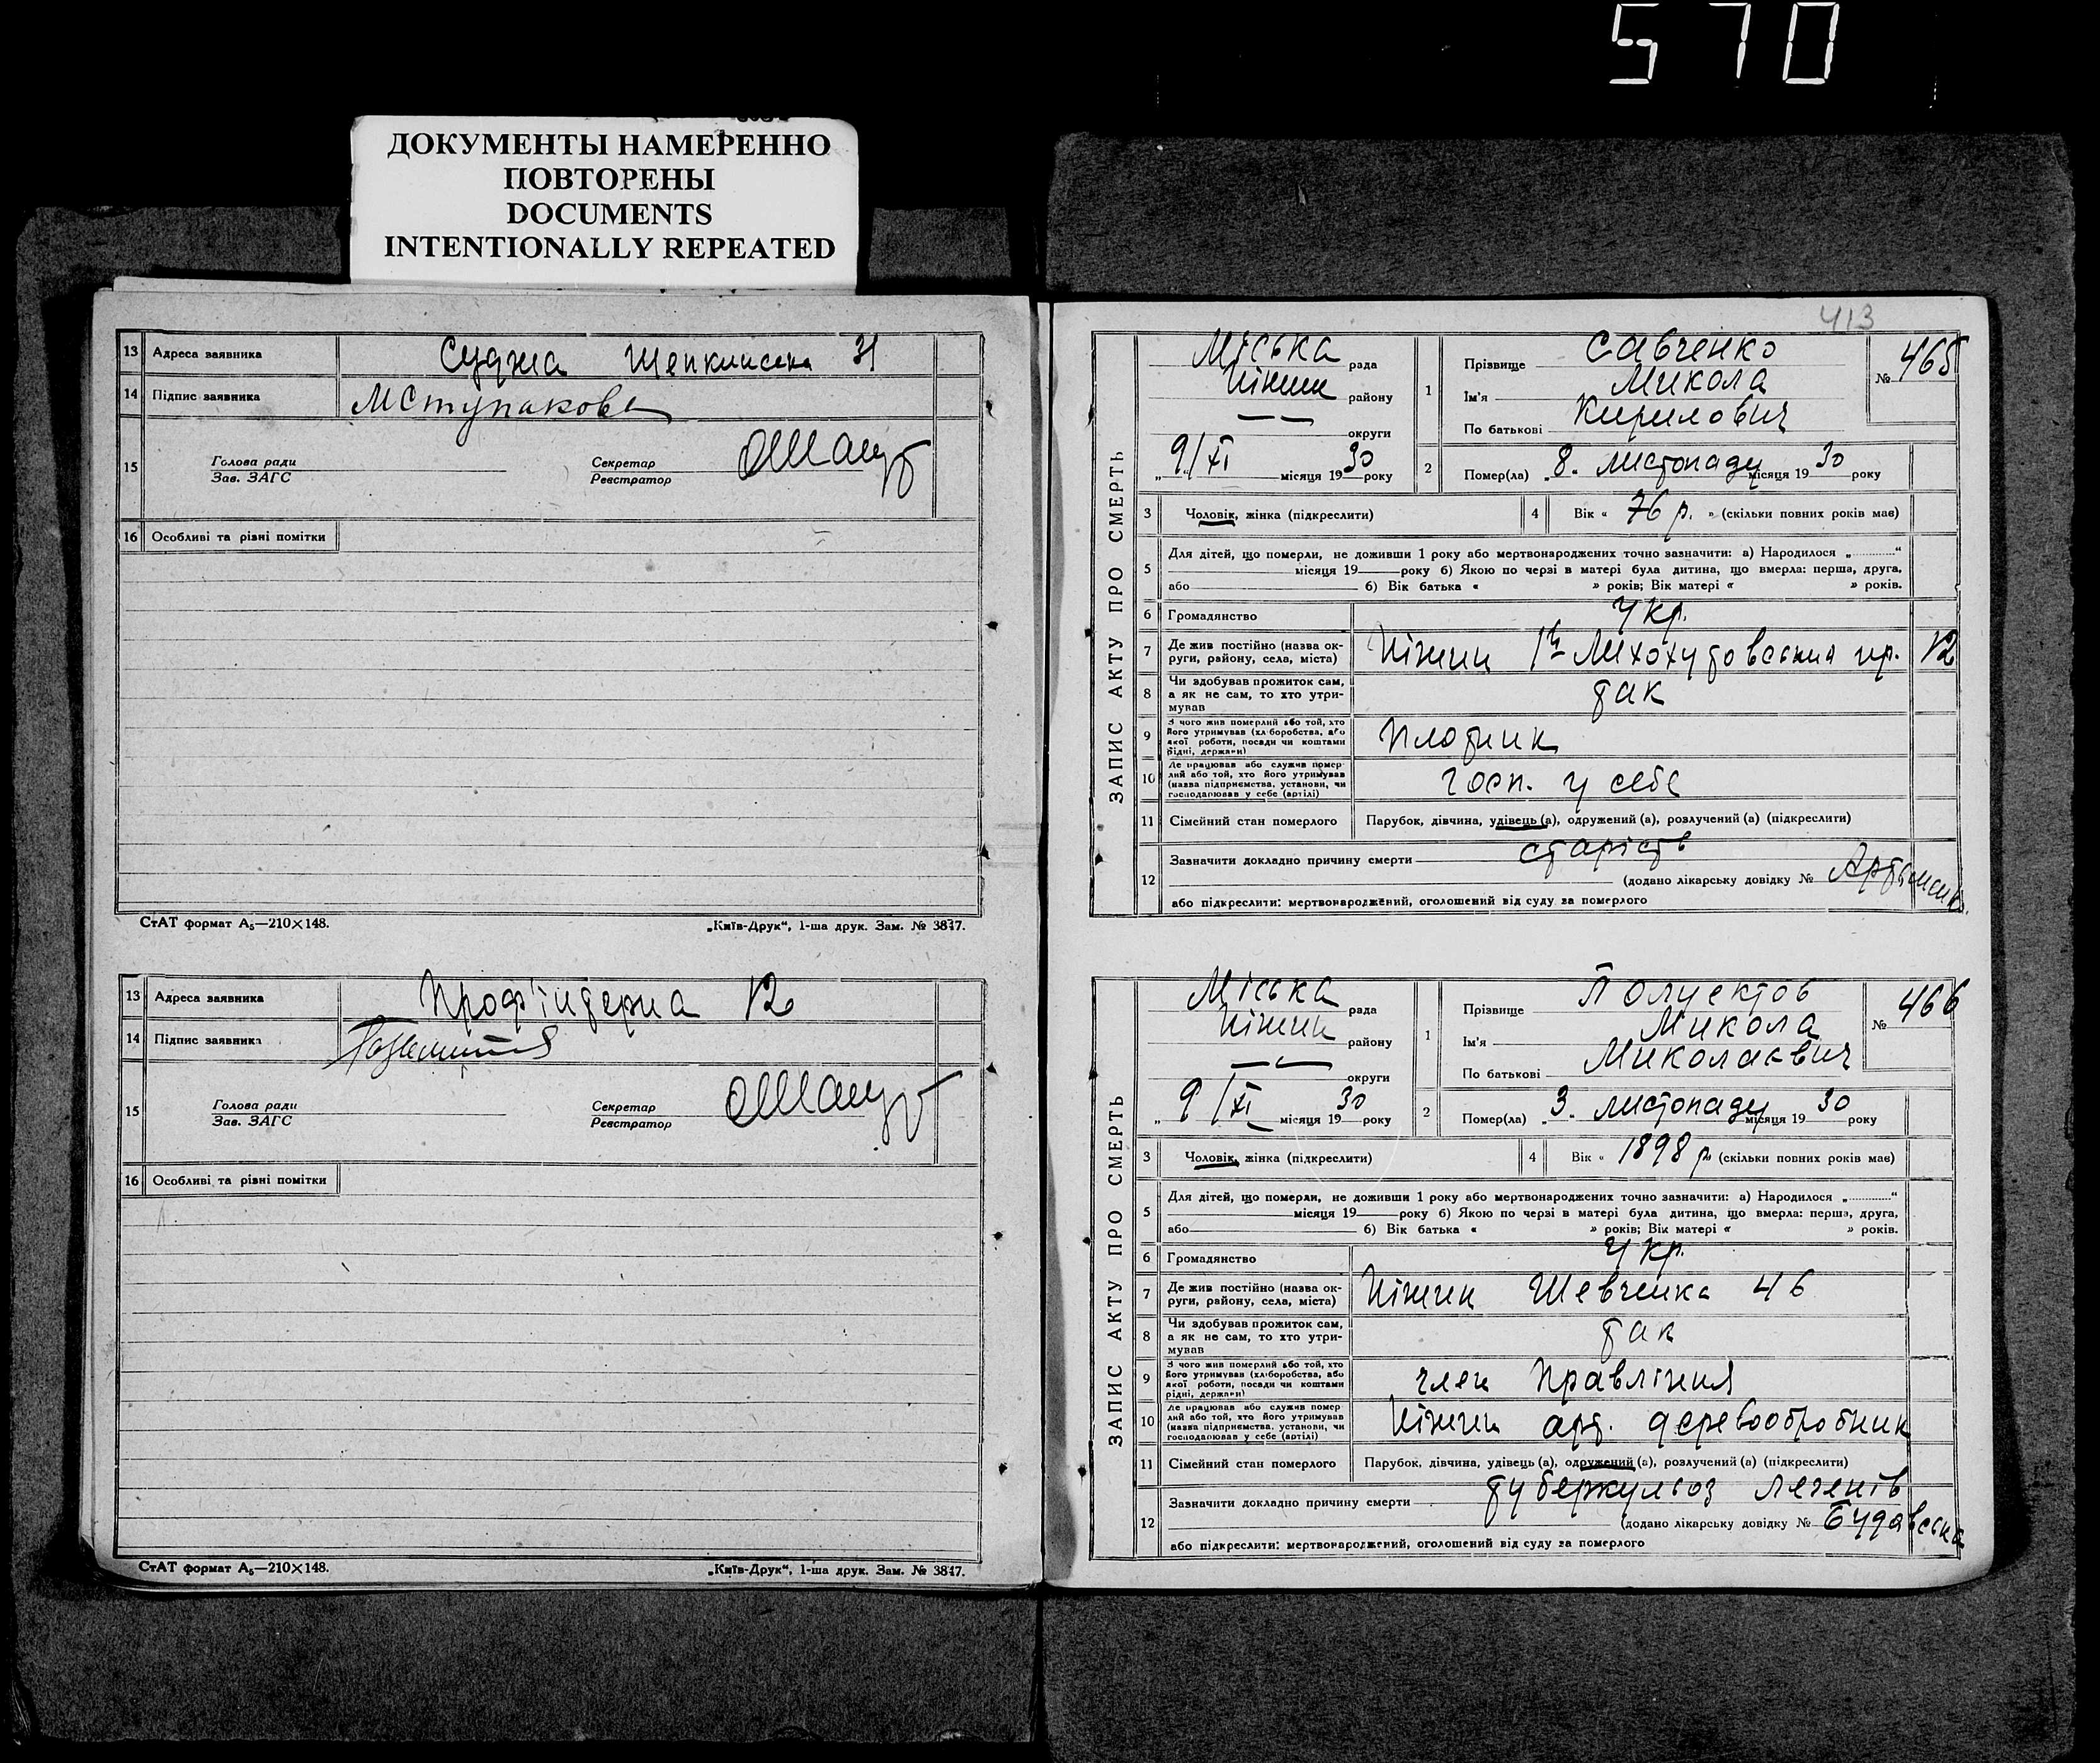 570
ДОКУМЕНТЫ НАМЕРЕННО
ПОВТОРЕНЫ
DOCUMENTS
INTENTIONALLY REPEATED
13 Адреса заявника Суджа 31
14 Підпис заявника МСтупакова
15 Голова ради Секретар
Зав. ЗАГС Реєстратор
16 Особливі та різні помітки
СтАТ формат А₅—210×148. „Київ-Друк“, 1-ша друк. Зам. № 3817.
13 Адреса заявника Профінтерна 12
14 Підпис заявника
15 Голова ради Секретар
Зав. ЗАГС Реєстратор
16 Особливі та різні помітки
СтАТ формат А₅—210×148. „Київ-Друк“, 1-ша друк. Зам. № 3817.
413
ЗАПИС АКТУ ПРО СМЕРТЬ
Міська рада
Ніжин району
— — округи
„ 9/XI місяця 1930 року
1 Прізвище Савченко
Ім'я Микола
По батькові Кирилович
№ 465
2 Помер(ла) „8. листопаду місяця 1930 року
3 Чоловік, жінка (підкреслити) 4 Вік « 76 р. » (скільки повних років мав)
5 Для дітей, що померли, не доживши 1 року або мертвонароджених точно зазначити: а) Народилося „ “
місяця 19 року б) Якою по черзі в матері була дитина, що вмерла: перша, друга,
або б) Вік батька « » років; Вік матері « » років.
6 Громадянство Укр.
7 Де жив постійно (назва ок-
руги, району, села, міста) Ніжин 12
8 Чи здобував прожиток сам,
а як не сам, то хто утри-
мував так
9 З чого жив померлий або той, хто
його утримував (хліборобства, або
якої роботи, посади чи коштами
рідні, держави) Плотник
10 Де працював або служив помер-
лий або той, хто його утримував
(назва підприємства, установи, чи
господарював у себе (артілі) госп. у себе
11 Сімейний стан померлого Парубок, дівчина, удівець (а), одружений (а), розлучений (а) (підкреслити)
12 Зазначити докладно причину смерти старість
(додано лікарську довідку №
або підкреслити: мертвонароджений, оголошений від суду за померлого
ЗАПИС АКТУ ПРО СМЕРТЬ
Міська рада
Ніжин району
— — округи
„ 9/XI місяця 1930 року
1 Прізвище Полуектов
Ім'я Микола
По батькові Миколаєвич
№ 466
2 Помер(ла) „3. листопаду місяця 1930 року
3 Чоловік, жінка (підкреслити) 4 Вік « 1898 р. (скільки повних років мав)
5 Для дітей, що померли, не доживши 1 року або мертвонароджених точно зазначити: а) Народилося „ “
місяця 19 року б) Якою по черзі в матері була дитина, що вмерла: перша, друга,
або б) Вік батька « » років; Вік матері « » років.
6 Громадянство Укр.
7 Де жив постійно (назва ок-
руги, району, села, міста) Ніжин Шевченка 46
8 Чи здобував прожиток сам,
а як не сам, то хто утри-
мував так
9 З чого жив померлий або той, хто
його утримував (хліборобства, або
якої роботи, посади чи коштами
рідні, держави) член Правління
10 Де працював або служив помер
лий або той, хто його утримував
(назва підприємства, установи, чи
господарював у себе (артілі) Ніжин арт. деревообробник
11 Сімейний стан померлого Парубок, дівчина, удівець (а), одружений (а), розлучений (а) (підкреслити)
12 Зазначити докладно причину смерти туберкульоз легенів
(додано лікарську довідку №
або підкреслити: мертвонароджений, оголошений від суду за померлого